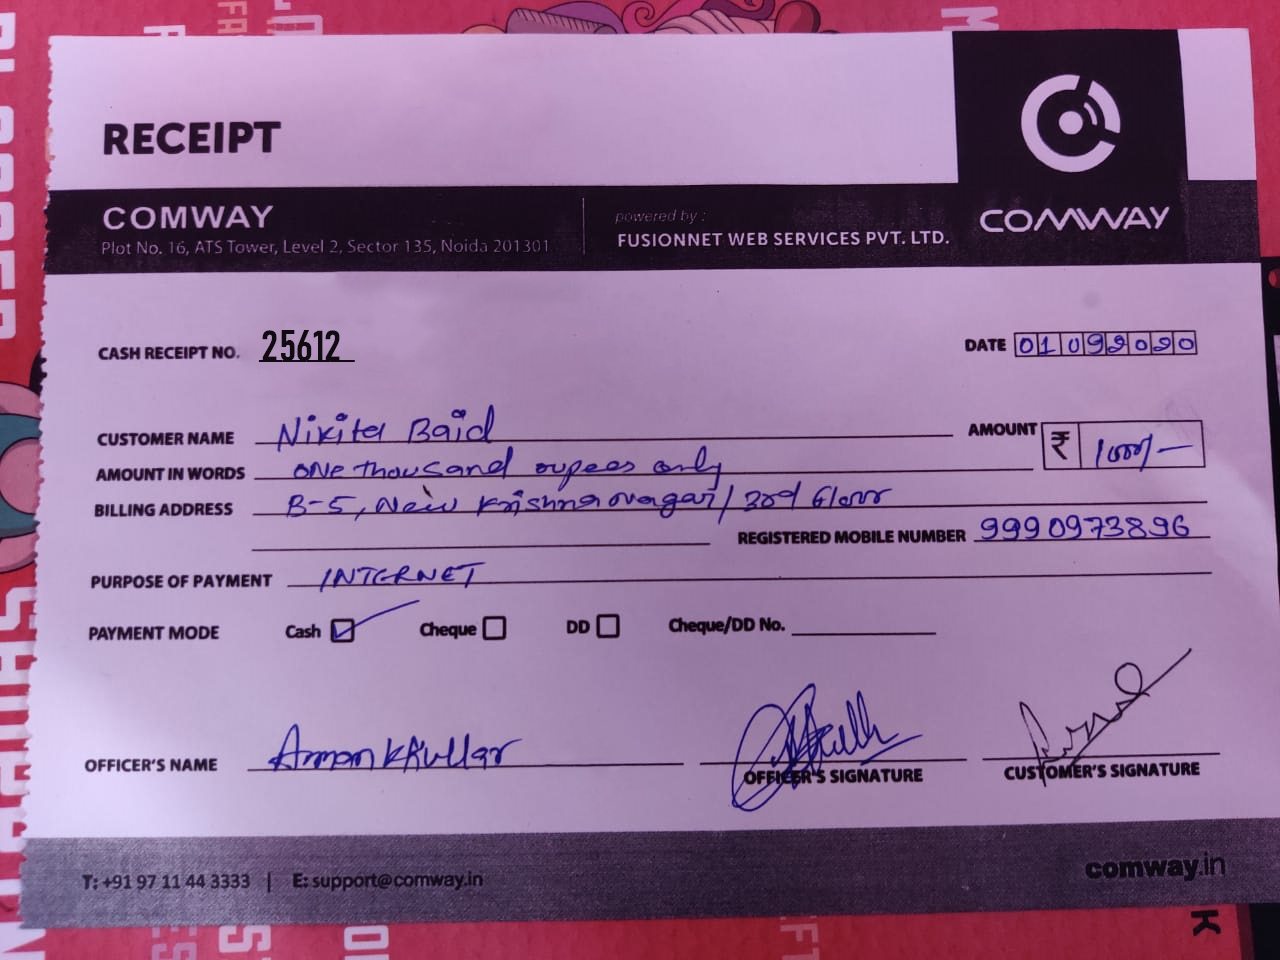 RECEIPT
COMWAY
Plot No. 16, ATS Tower, Level 2, Sector 135, Noida 201301
powered by :
FUSIONNET WEB SERVICES PVT. LTD.
COMWAY
CASH RECEIPT NO. 25612
DATE 01092020
CUSTOMER NAME Nikita Baid
AMOUNT ₹ 1000/-
AMOUNT IN WORDS one thousand rupees only
BILLING ADDRESS B-5, New Krishna nagar, 3rd floor
REGISTERED MOBILE NUMBER 9990973896
PURPOSE OF PAYMENT INTERNET
PAYMENT MODE Cash Cheque DD Cheque/DD No.
OFFICER'S NAME Arman Khullar
OFFICER'S SIGNATURE
CUSTOMER'S SIGNATURE
T: +91 97 11 44 3333 | E: support@comway.in
comway.in